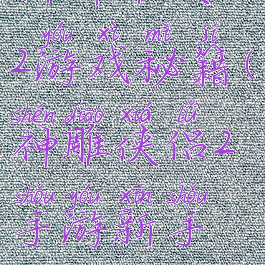 yóu xì mì jí
2游戏秘籍(
shén diāo xiá lǚ
神雕侠侣2
shǒu yóu xīn shǒu
手游新手